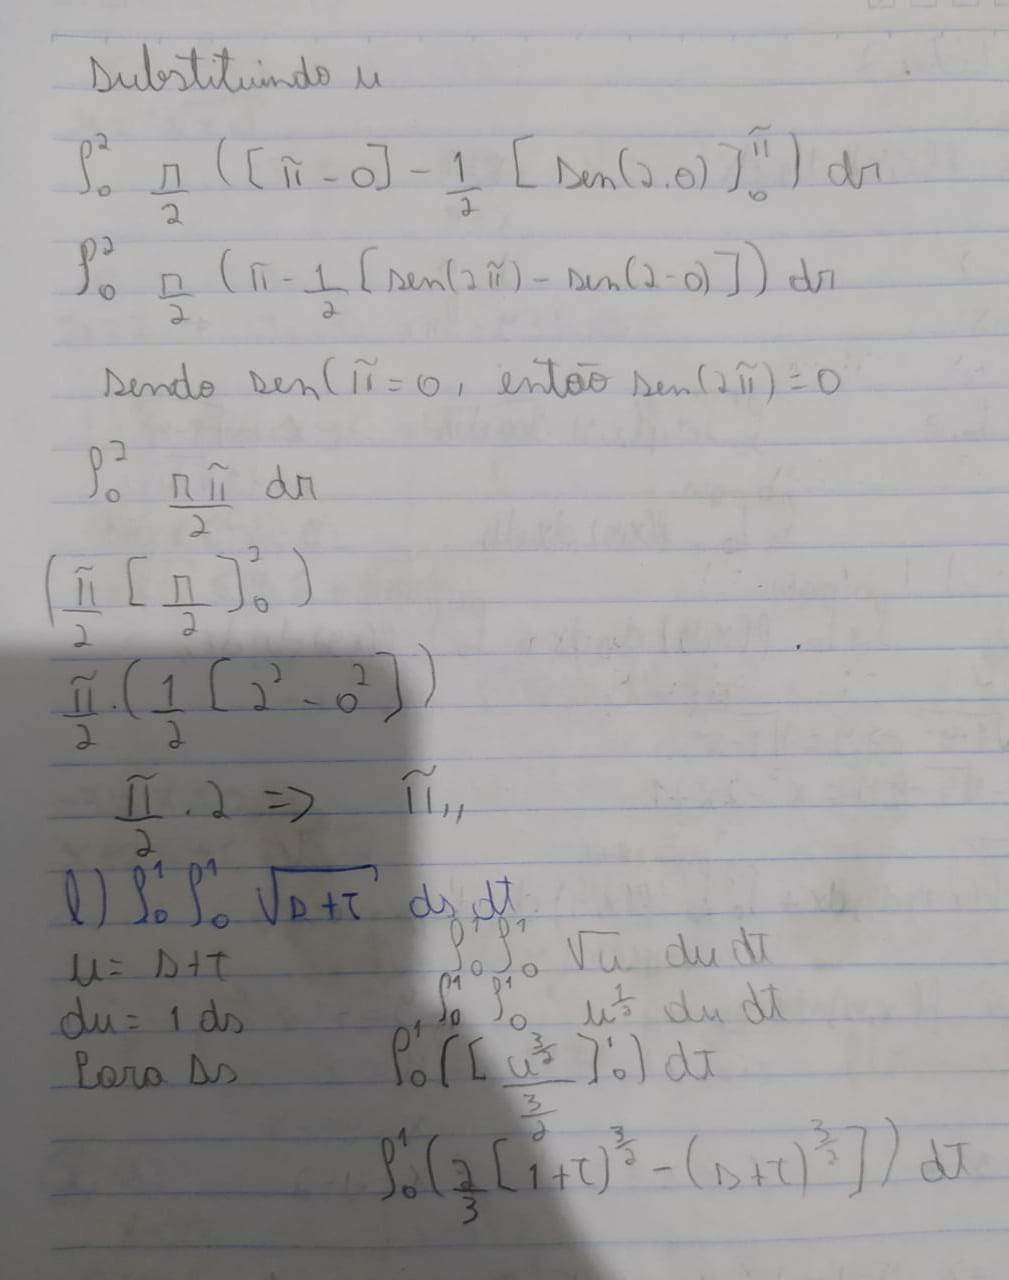 Substituindo u
∫₀² r/2 ([π - 0] - 1/2 [sen(2.θ)]₀^π) dr
∫₀² r/2 (π - 1/2 [sen(2π) - sen(2·0)]) dr
sendo sen(π = 0, então sen(2π) = 0
∫₀² rπ/2 dr
(π/2 [r/2]₀²)
π/2 · (1/2 [2² - 0²])
π/2 · 2 => π,,
l) ∫₀¹ ∫₀¹ √(s+t) ds dt
u = s+t ∫₀¹ ∫₀¹ √u du dt
du = 1 ds ∫₀¹ ∫₀¹ u^(1/2) du dt
Para Ds ∫₀¹ ([u^(3/2) / (3/2)]₀¹) dt
∫₀¹ (2/3 [1+t)^(3/2) - (s+t)^(3/2)]) dt